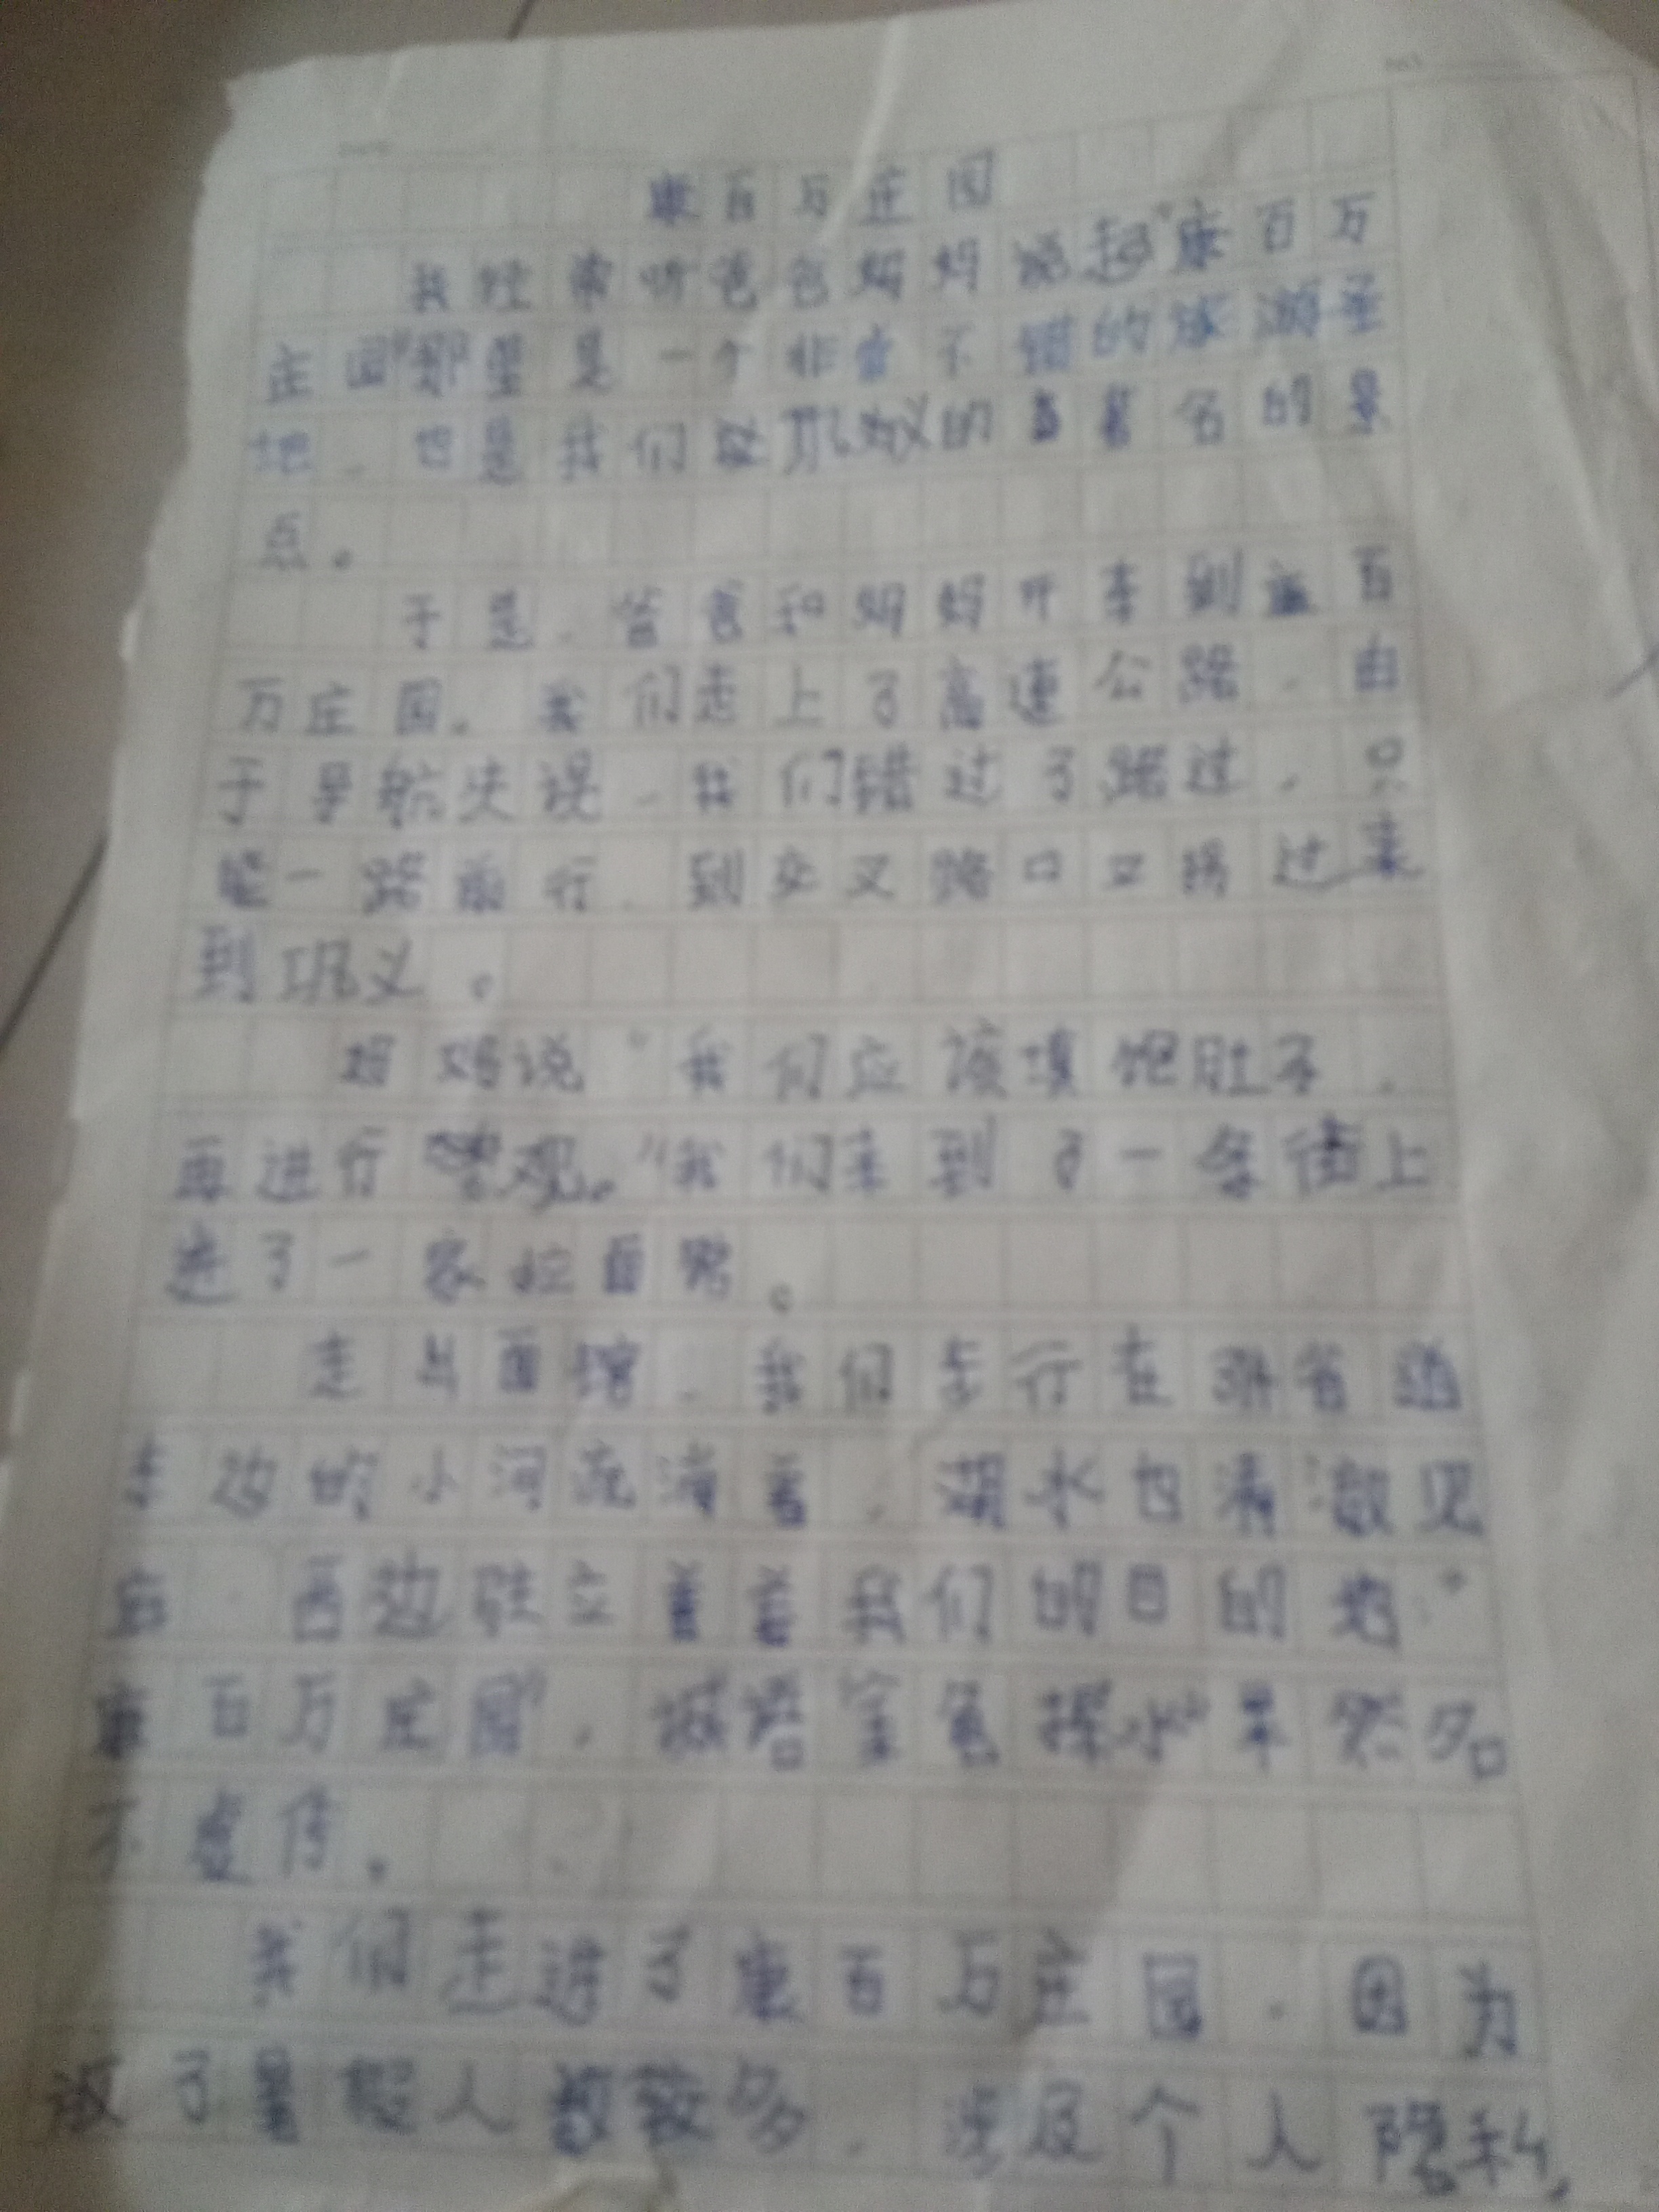 康百万庄园
我经常听爸爸妈妈说起"康百万
庄园"那里是一个非常不错的旅游圣
地,也是我们巩义的著名的景
点。
于是,爸爸和妈妈开车到康百
万庄园。我们走上了高速公路,由
于导航失误,我们错过了路过,只
能一路前行,到交叉路口又拐过来
到巩义。
妈妈说"我们应该填饱肚子,
再进行观。"我们来到了一条街上
进了一家拉面馆。
走出面馆,我们车行在省道
东边的小河流淌着,湖水也清澈见
底,西边驻立着着我们的目的地"
康百万庄园",城语"金龟探水"果然名
不虚传。
我们走进了康百万庄园,因为
人数较多,涉及个人隐私,